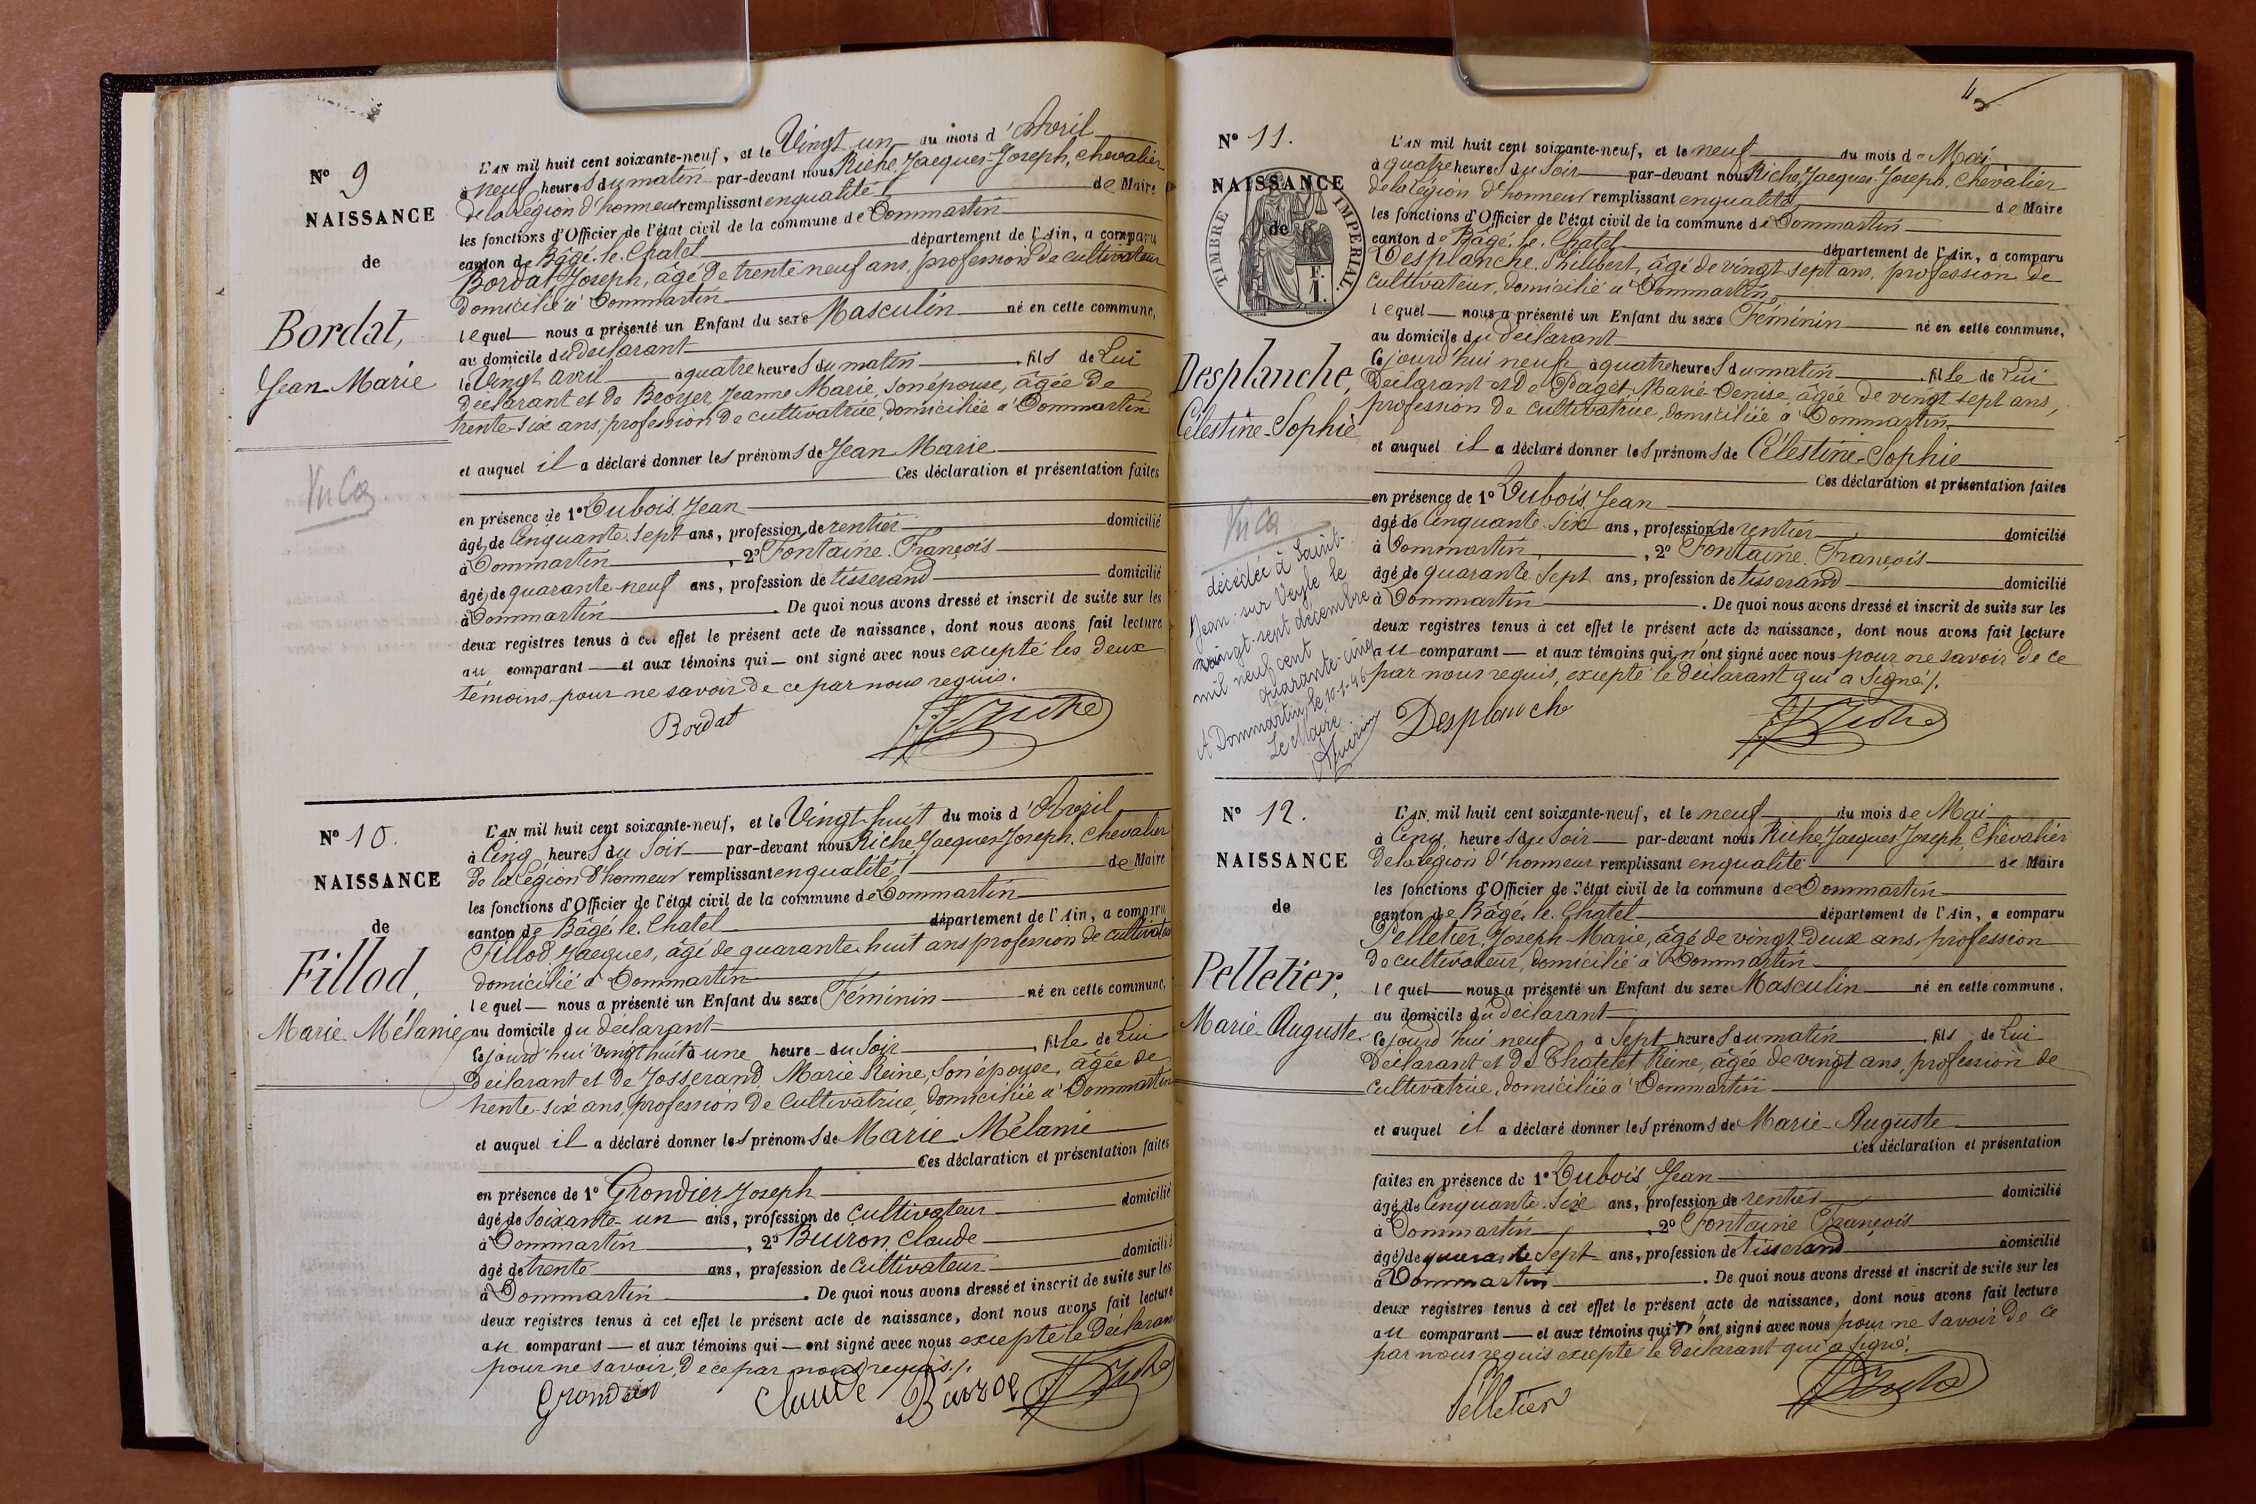 N° 9
NAISSANCE
de
Bordat,
Jean Marie
Vu
L'AN mil huit cent soixante-neuf, et le Vingt un du mois d'Avril
à neuf heures du matin par-devant nous Riche, Jacques-Joseph, Chevalier
de la légion d'honneur remplissant en qualité de Maire
les fonctions d'Officier de l'état civil de la commune de Dommartin
canton de Bâgé-le-Chatel département de l'Ain, a comparu
Bordat Joseph, âgé de trente neuf ans, profession de cultivateur
domicilié à Dommartin
lequel nous a présenté un Enfant du sexe Masculin né en cette commune,
au domicile du déclarant
le Vingt avril à quatre heures du matin, fils de Lui
déclarant et de Broyer, Jeanne Marie, son épouse, âgée de
trente-six ans, profession de cultivatrice, domiciliée à Dommartin
et auquel il a déclaré donner les prénoms de Jean Marie
Ces déclaration et présentation faites
en présence de 1° Dubois Jean
âgé de Cinquante-sept ans, profession de rentier domicilié
à Dommartin, 2° Fontaine François
âgé de quarante-neuf ans, profession de tisserand domicilié
à Dommartin. De quoi nous avons dressé et inscrit de suite sur les
deux registres tenus à cet effet le présent acte de naissance, dont nous avons fait lecture
au comparant et aux témoins qui ont signé avec nous excepté les deux
témoins, pour ne savoir de ce par nous requis.
Bordat
J. J. Riche
N° 10.
NAISSANCE
de
Fillod,
Marie Mélanie
L'AN mil huit cent soixante-neuf, et le Vingt-huit du mois d'Avril
à Cinq heures du Soir par-devant nous Riche, Jacques Joseph, Chevalier
de la Légion d'honneur remplissant en qualité de Maire
les fonctions d'Officier de l'état civil de la commune de Dommartin
canton de Bâgé-le-Chatel département de l'Ain, a comparu
Fillod, Jacques, âgé de quarante-huit ans profession de cultivateur
domicilié à Dommartin
lequel nous a présenté un Enfant du sexe Féminin né en cette commune,
au domicile du déclarant
Cejourd'hui vingt huit à une heure du Soir, fille de Lui
déclarant et de Josserand, Marie Reine, son épouse, âgée de
trente-six ans, profession de Cultivatrice, domiciliée à Dommartin
et auquel il a déclaré donner les prénoms de Marie Mélanie
Ces déclaration et présentation faites
en présence de 1° Grondier Joseph
âgé de soixante-un ans, profession de Cultivateur domicilié
à Dommartin, 2° Buiron, Claude
âgé de trente ans, profession de cultivateur domicilié
à Dommartin. De quoi nous avons dressé et inscrit de suite sur les
deux registres tenus à cet effet le présent acte de naissance, dont nous avons fait lecture
au comparant et aux témoins qui ont signé avec nous excepté le déclarant
pour ne savoir, de ce par nous requis./.
Grondier Claude J. J. Riche
4
N° 11.
NAISSANCE
de
TIMBRE IMPERIAL.
F.
1.
Desplanche,
Célestine-Sophie
Vu
décédée à Saint-
Jean-sur Veyle le
vingt-sept décembre
mil neuf cent
quarante-cinq
A Dommartin, le 10-1-46
Le Maire
L'AN mil huit cent soixante-neuf, et le neuf du mois de Mai
à quatre heures du Soir par-devant nous Riche Jacques-Joseph, Chevalier
de la légion d'honneur remplissant en qualité de Maire
les fonctions d'Officier de l'état civil de la commune de Dommartin
canton de Bâgé-le-Chatel département de l'Ain, a comparu
Desplanche, Philibert, âgé de vingt sept ans, profession de
cultivateur, domicilié à Dommartin
lequel nous a présenté un Enfant du sexe Féminin né en cette commune,
au domicile du déclarant
Cejourd'hui neuf à quatre heures du matin, fille de Lui
déclarant et de Paget, Marie-Denise, âgée de vingt sept ans,
profession de cultivatrice, domiciliée à Dommartin
et auquel il a déclaré donner les prénoms de Célestine-Sophie
Ces déclaration et présentation faites
en présence de 1° Dubois Jean
âgé de Cinquante-six ans, profession de rentier domicilié
à Dommartin, 2° Fontaine François
âgé de quarante sept ans, profession de tisserand domicilié
à Dommartin. De quoi nous avons dressé et inscrit de suite sur les
deux registres tenus à cet effet le présent acte de naissance, dont nous avons fait lecture
au comparant et aux témoins qui n'ont signé avec nous pour ne savoir de ce
par nous requis, excepté le déclarant qui a signé./.
Desplanche
J. J. Riche
N° 12.
NAISSANCE
de
Pelletier,
Marie-Auguste
L'AN mil huit cent soixante-neuf, et le neuf du mois de Mai
à Cinq heures du Soir par-devant nous Riche Jacques Joseph, Chevalier
de la légion d'honneur remplissant en qualité de Maire
les fonctions d'Officier de l'état civil de la commune de Dommartin
canton de Bâgé-le-Chatel département de l'Ain, a comparu
Pelletier, Joseph-Marie, âgé de vingt-deux ans, profession
de cultivateur, domicilié à Dommartin
lequel nous a présenté un Enfant du sexe Masculin né en cette commune,
au domicile du déclarant
Cejourd'hui neuf à Sept heures du matin, fils de Lui
déclarant et de Chatelet Reine, âgée de vingt ans, profession de
cultivatrice, domiciliée à Dommartin
et auquel il a déclaré donner les prénoms de Marie-Auguste
Ces déclaration et présentation
faites en présence de 1° Dubois, Jean
âgé de Cinquante-six ans, profession de rentier domicilié
à Dommartin, 2° Fontaine François
âgé de quarante Sept ans, profession de tisserand domicilié
à Dommartin. De quoi nous avons dressé et inscrit de suite sur les
deux registres tenus à cet effet le présent acte de naissance, dont nous avons fait lecture
au comparant et aux témoins qui n'ont signé avec nous pour ne savoir de ce
par nous requis excepté le déclarant qui a signé.
Pelletier
J. J. Riche